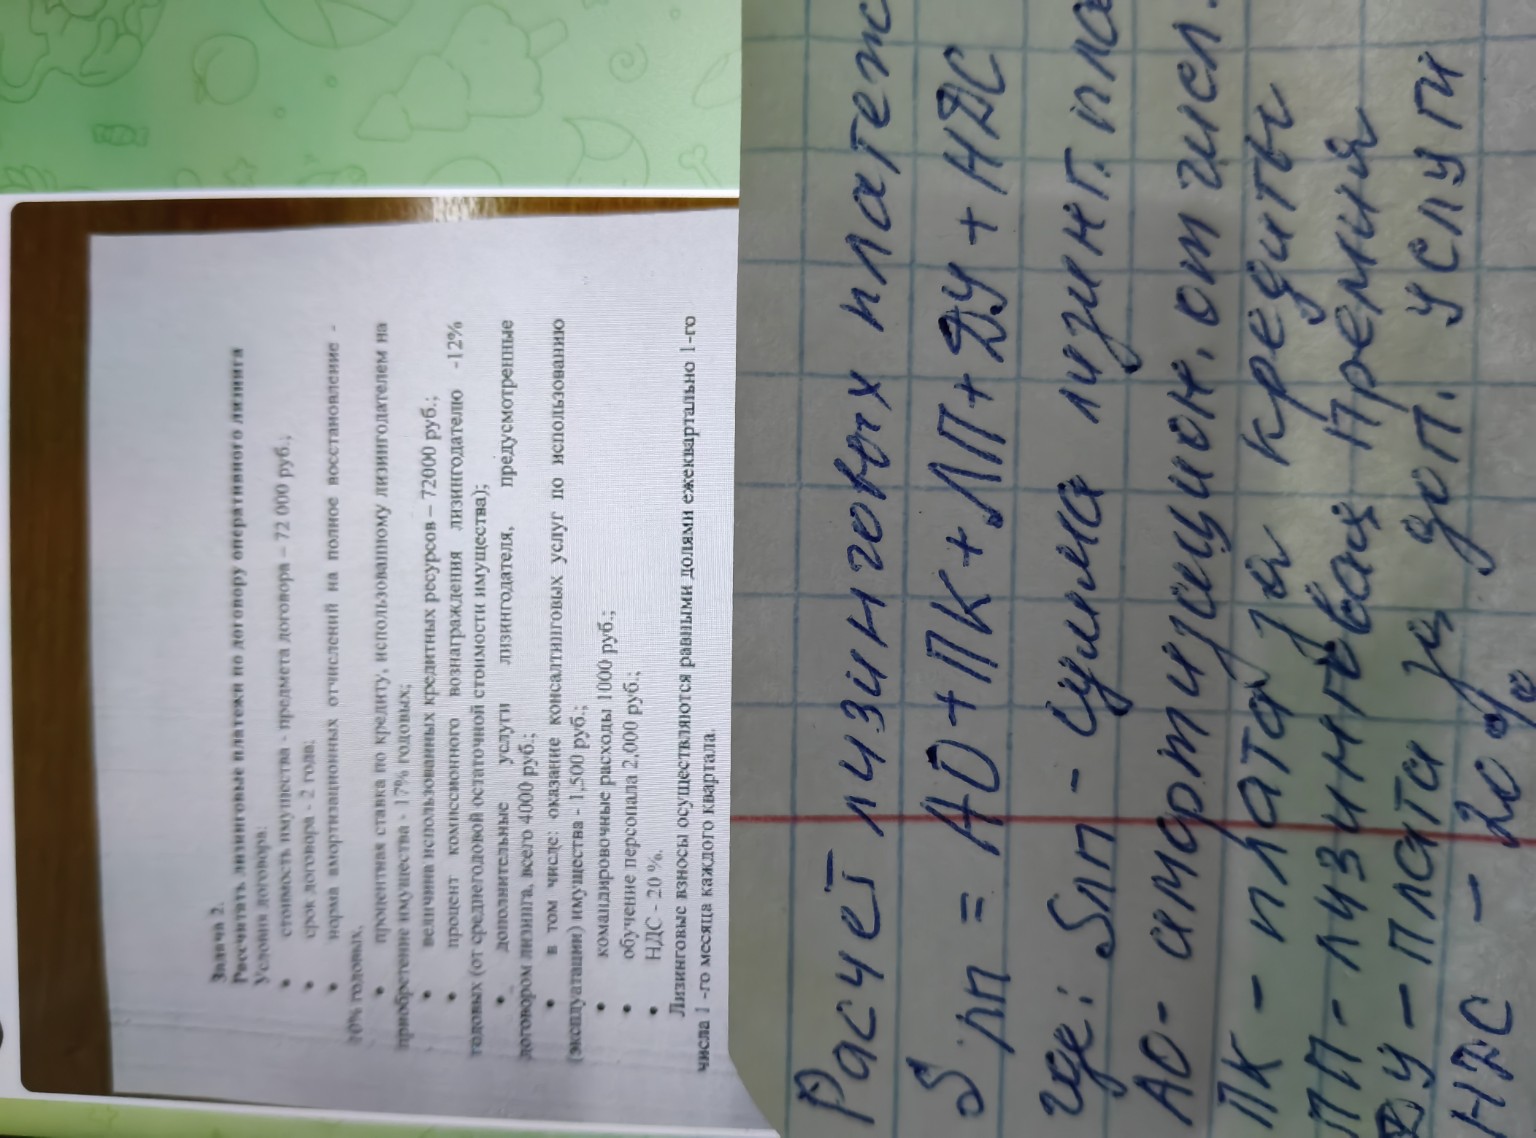 Задача 2.
Рассчитать лизинговые платежи по договору оперативного лизинга
Условия договора:
• стоимость имущества - предмета договора – 72 000 руб.;
• срок договора - 2 года;
• норма амортизационных отчислений на полное восстановление -
10% годовых,
• процентная ставка по кредиту, использованному лизингодателем на
приобретение имущества - 17% годовых;
• величина использованных кредитных ресурсов – 72000 руб.;
• процент комиссионного вознаграждения лизингодателю -12%
годовых (от среднегодовой остаточной стоимости имущества);
• дополнительные услуги лизингодателя, предусмотренные
договором лизинга, всего 4000 руб.;
• в том числе: оказание консалтинговых услуг по использованию
(эксплуатации) имущества - 1,500 руб.;
• командировочные расходы 1000 руб.;
• обучение персонала 2,000 руб.;
• НДС - 20 %.
Лизинговые взносы осуществляются равными долями ежеквартально 1-го
числа 1 -го месяца каждого квартала.
Расчет лизинговых платеж
Sлп = АО + ПК + ЛП + ДУ + НДС
где: Sлп - сумма лизинг. пла
АО - амортизацион. отчисл.
ПК - плата за кредиты
ЛП - лизинговая премия
ДУ - плата за доп. услуги
НДС - 20%